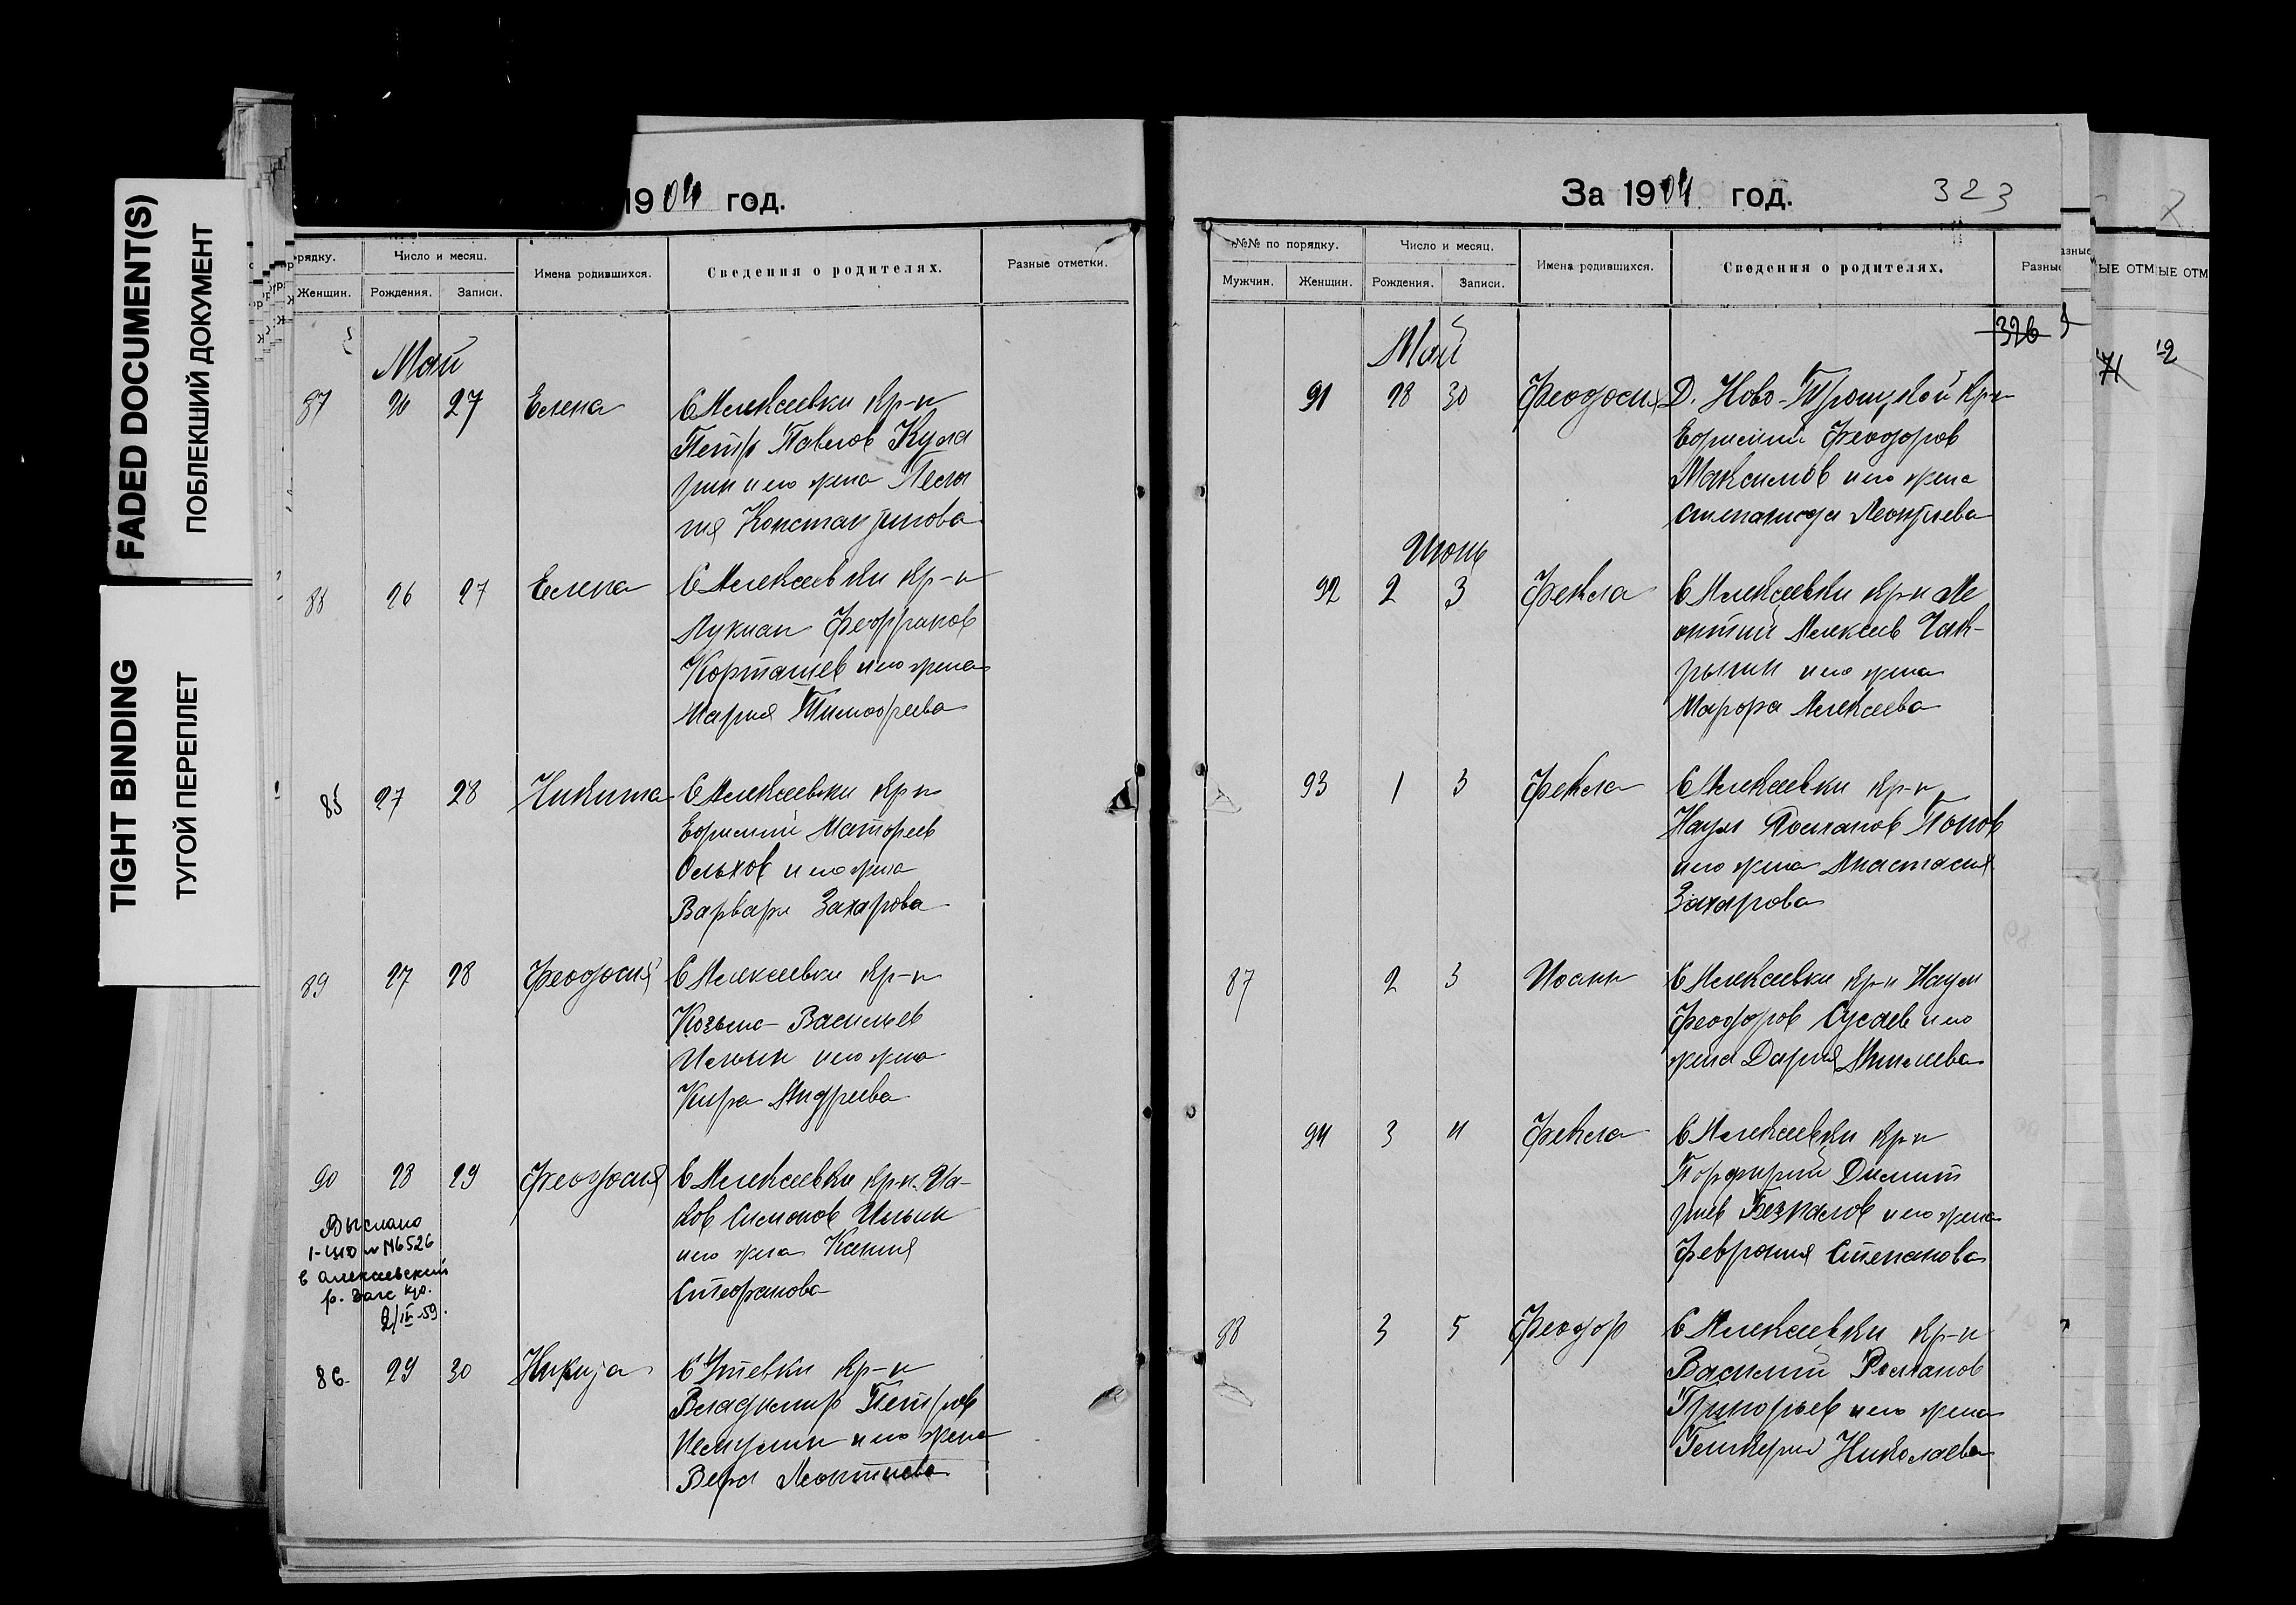 FADED DOCUMENT(S)
ПОБЛЕКШИЙ ДОКУМЕНТ
TIGHT BINDING
ТУГОЙ ПЕРЕПЛЕТ
1904 год.
орядку.
Число и месяц.
Имена родившихся.
Сведения о родителях.
Разные отметки.
Женщин.
Рождения.
Записи.
Май
87 26 27 Елена С Алексеевки кр-н
Петр Павлов Кула
гин и его жена Пела
гия Константинова
88 26 27 Елена С Алексеевки кр-н
Лукиан Феофанов
Корташев и его жена
Мария Тимофеева
85 27 28 Никита С Алексеевки кр-н
Евфимий Матфеев
Ольхов и его жена
Варвара Захарова
89 27 28 Феодосия С Алексеевки кр-н
Козьма Васильев
Ильин и его жена
Кира Андреева
90 28 29 Феодосия С Алексеевки кр-н Иа-
ков Симонов Ильин
и его жена Ксения
Стефанова
Выслано
№6526
в Алексеевский
р.
2/IV-59.
86 29 30 Никита С Утевки кр-н
Владимир Петров
и его жена
Вера Леонтиева
За 1904 год.
323
№№ по порядку.
Число и месяц.
Имена родившихся.
Сведения о родителях.
Разные
Мужчин.
Женщин.
Рождения.
Записи.
326
Май
91 28 30 Феодосия Д. Ново-Троицкой кр-н
Евфимий Феодоров
Максимов и его жена
Степанида Леонтиева
Июнь
92 2 3 Фекла С Алексеевки кр-н Ле
онтий Алексеев Чак-
рыгин и его жена
Марфа Алексеева
93 1 3 Фекла С Алексеевки кр-н
Наум Романов Попов
и его жена Анастасия
Захарова
87 2 3 Иоанн С Алексеевки кр-н Наум
Феодоров Сусаев и его
жена Дария
94 3 4 Фекла С Алексеевки кр-н
Порфирий Димит
риев Безпалов и его жена
Феврония Степанова
88 3 5 Феодор С Алексеевки кр-н
Василий Романов
Григорьев и его жена
Гликерия Николаева
ЫЕ ОТМ
ЫЕ ОТМ